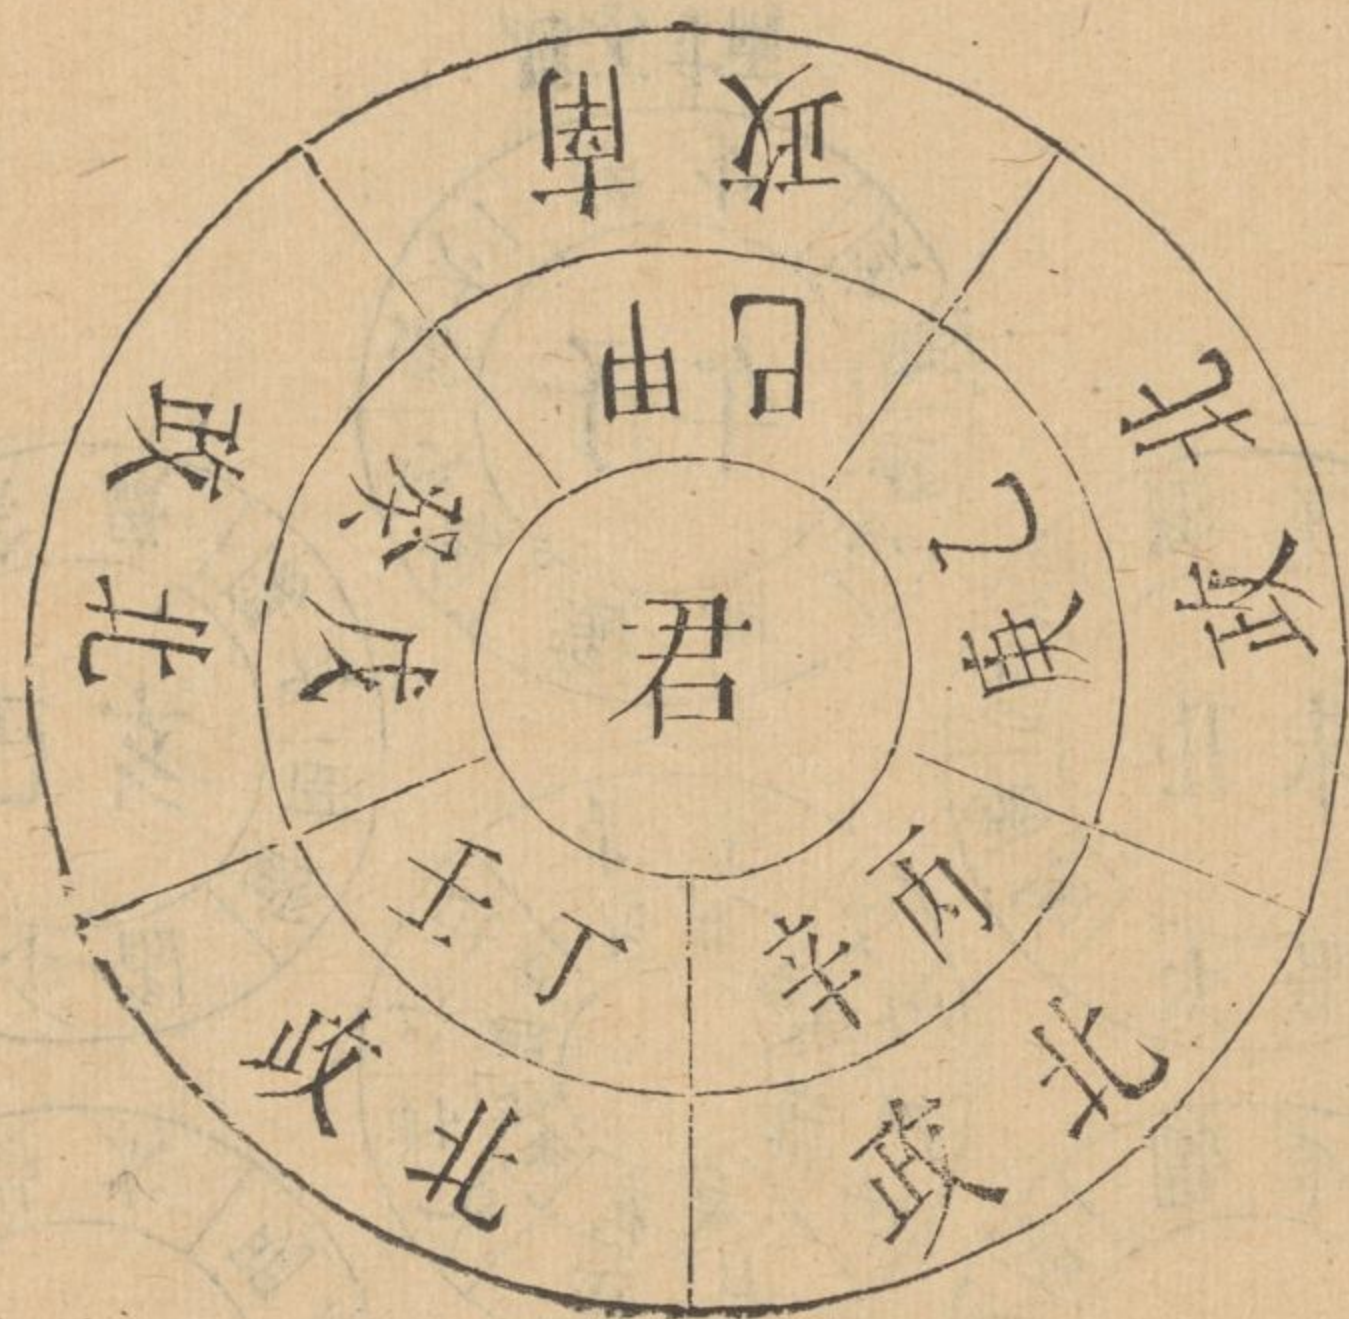 君
甲巳
乙庚
丙辛
丁壬
戊癸
南政
北政
北政
北政
北政